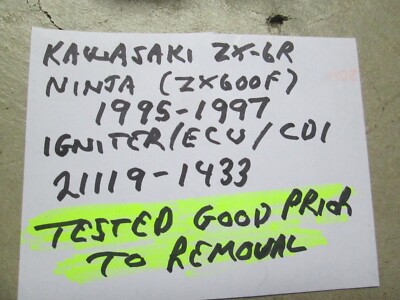 KAWASAKI ZX-6R
NINJA (ZX600F)
1995-1997
IGNITER/ECU/CDI
21119-1433
TESTED GOOD PRIOR
TO REMOVAL